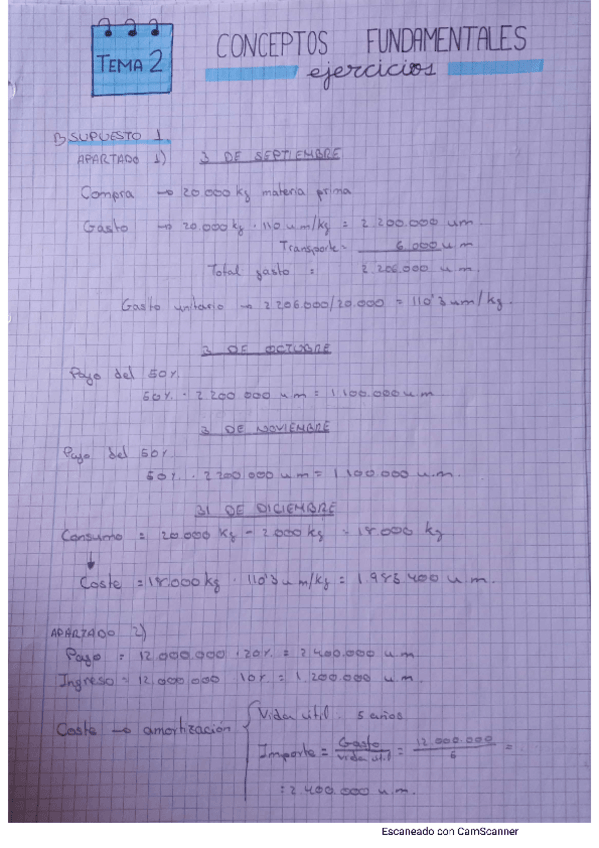 TEMA 2
CONCEPTOS FUNDAMENTALES
ejercicios
1) SUPUESTO 1.
APARTADO 1) 3 DE SEPTIEMBRE
Compra → 20.000 kg materia prima
Gasto → 20.000 kg · 110 u.m/kg = 2.200.000 um.
Transporte = 6.000 u m
Total gasto = 2.206.000 u m.
Gasto unitario → 2.206.000/20.000 = 110'3 um/kg.
3 DE OCTUBRE
Pago del 50%.
50% · 2.200.000 u m = 1.100.000 u m
3 DE NOVIEMBRE
Pago del 50%.
50% · 2.200.000 u m = 1.100.000 u m.
31 DE DICIEMBRE
Consumo = 20.000 kg - 2.000 kg = 18.000 kg
Coste = 18.000 kg · 110'3 u m/kg = 1.985.400 u m.
APARTADO 2)
Pago = 12.000.000 · 20% = 2.400.000 u m
Ingreso = 12.000.000 10% = 1.200.000 u m.
Coste → amortización
Vida útil. 5 años
Importe = Gasto / vida útil = 12.000.000 / 5 =
= 2.400.000 u m.
Escaneado con CamScanner